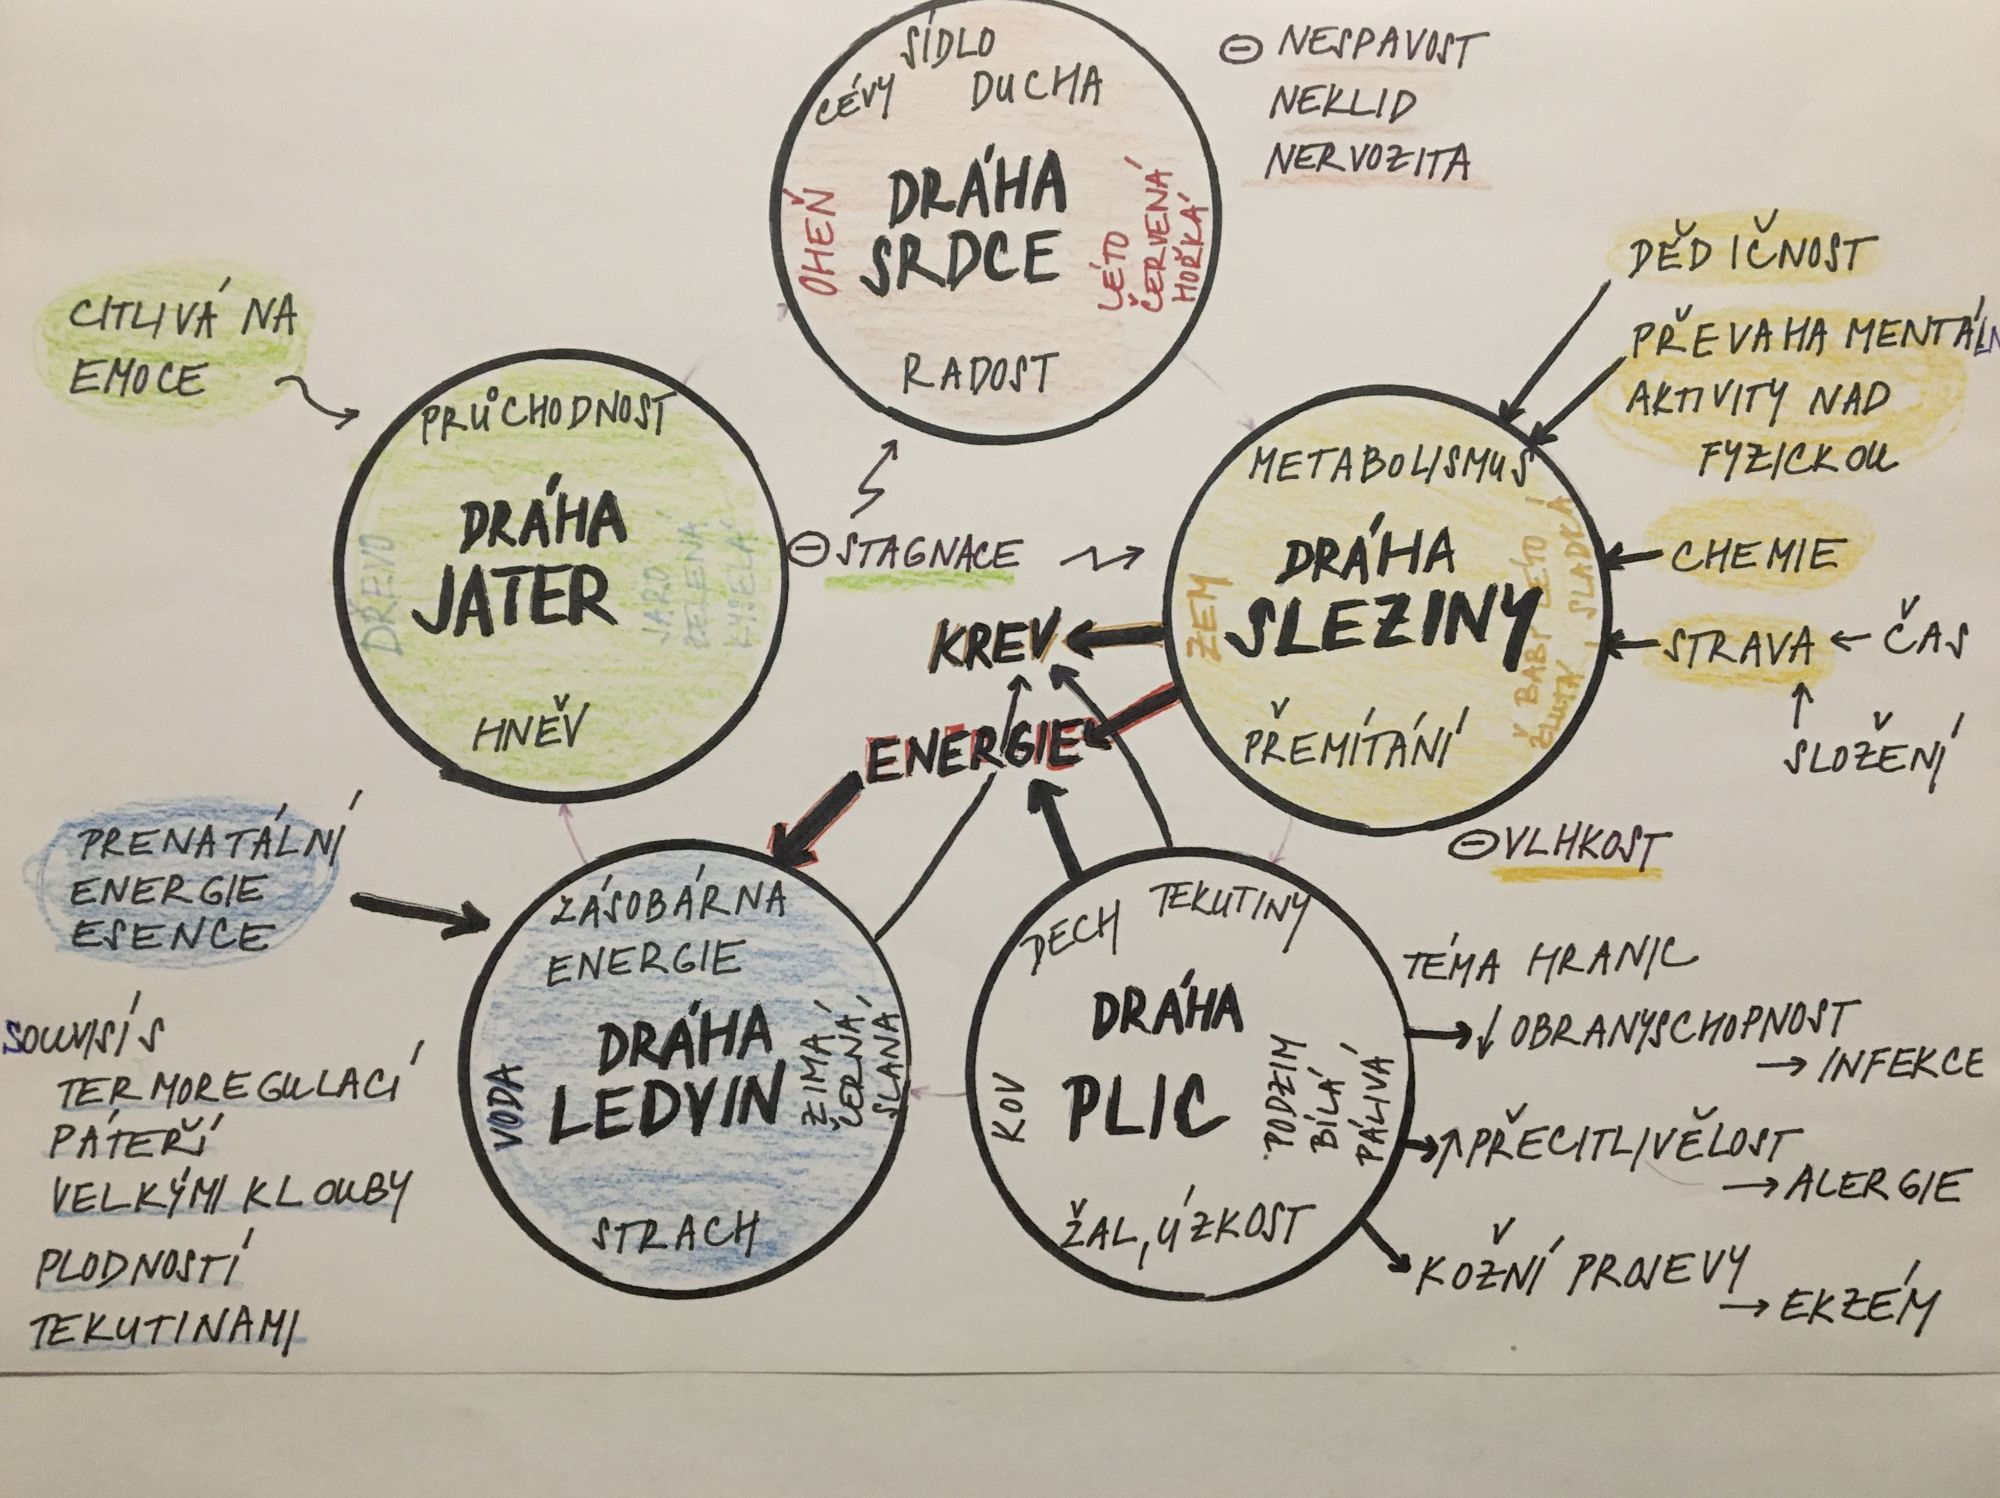 SÍDLO
DUCHA
CÉVY
DRÁHA
SRDCE
OHEŇ
LÉTO
ČERVENÁ
HOŘKÁ
RADOST
⊖ NESPAVOST
NEKLID
NERVOZITA
CITLIVÁ NA
EMOCE
PRŮCHODNOST
DRÁHA
JATER
DŘEVO
JARO
ZELENÁ
KYSELÁ
HNĚV
⊖ STAGNACE
DĚDIČNOST
PŘEVAHA MENTÁLN
AKTIVITY NAD
FYZICKOU
CHEMIE
STRAVA ← ČAS
↑
SLOŽENÍ
METABOLISMUS
DRÁHA
SLEZINY
ZEM
BABÍ LÉTO
ŽLUTÁ, SLADKÁ
PŘEMÍTÁNÍ
⊖ VLHKOST
KREV
ENERGIE
PRENATÁLNÍ
ENERGIE
ESENCE
ZÁSOBÁRNA
ENERGIE
DRÁHA
LEDVIN
VODA
ZIMA
ČERNÁ
SLANÁ
STRACH
SOUVISÍ S
TERMOREGULACÍ
PÁTEŘÍ
VELKÝMI KLOUBY
PLODNOSTÍ
TEKUTINAMI
DECH
TEKUTINY
DRÁHA
PLIC
KOV
PODZIM
BÍLÁ
PÁLIVÁ
ŽAL, ÚZKOST
TÉMA HRANIC
→ ↓ OBRANYSCHOPNOST
→ INFEKCE
→ ↑ PŘECITLIVĚLOST
→ ALERGIE
KOŽNÍ PROJEVY
→ EKZÉM